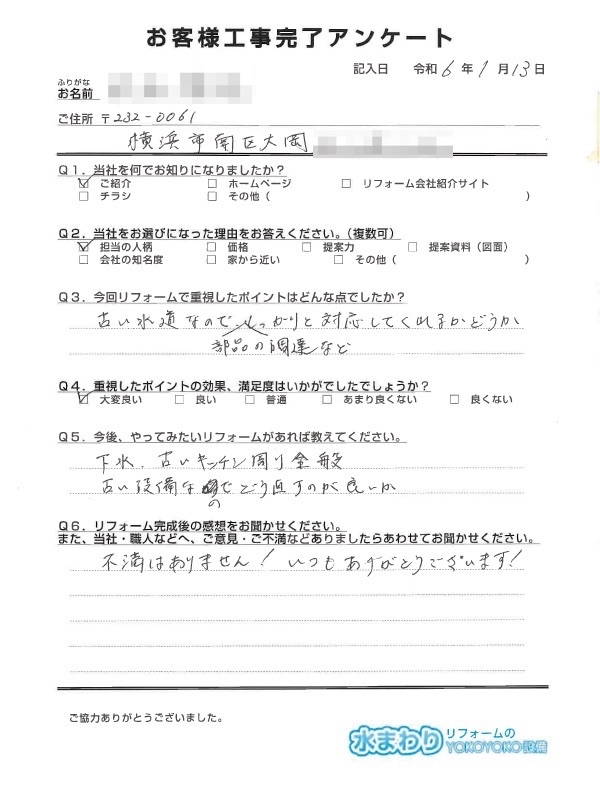 お客様工事完了アンケート
記入日 令和6年1月13日
ふりがな
お名前
ご住所 〒232-0061
横浜市南区大岡
Q1. 当社を何でお知りになりましたか?
☑ ご紹介 □ ホームページ □ リフォーム会社紹介サイト
□ チラシ □ その他( )
Q2. 当社をお選びになった理由をお答えください。(複数可)
☑ 担当の人柄 □ 価格 □ 提案力 □ 提案資料(図面)
□ 会社の知名度 □ 家から近い □ その他( )
Q3. 今回リフォームで重視したポイントはどんな点でしたか?
古い水道なのでしっかりと対応してくれるかどうか
部品の調達など
Q4. 重視したポイントの効果、満足度はいかがでしたでしょうか?
☑ 大変良い □ 良い □ 普通 □ あまり良くない □ 良くない
Q5. 今後、やってみたいリフォームがあれば教えてください。
下水、古いキッチン周り全般
古い設備なのでどう直すのが良いか
Q6. リフォーム完成後の感想をお聞かせください。
また、当社・職人などへ、ご意見・ご不満などありましたらあわせてお聞かせください。
不満はありません! いつもありがとうございます!
ご協力ありがとうございました。
水まわりリフォームの
YOKOYOKO設備